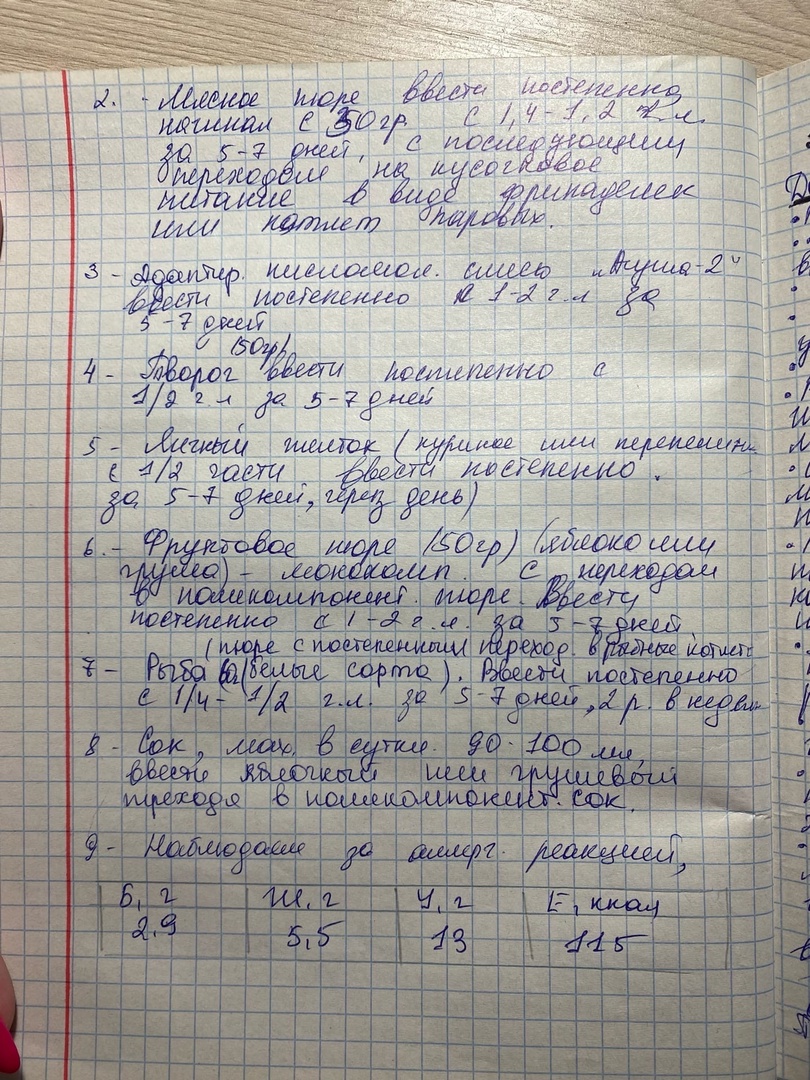 2. - Мясное пюре ввести постепенно,
начиная с 50гр. с 1,4-1,2 г.л.
за 5-7 дней, с последующим
переходом на кусочковое
питание в виде фрикаделек
или котлет паровых.
3 - Адаптир. кисломол. смесь „Агуша-2"
ввести постепенно с 1-2 г.л за
5-7 дней
(50гр)
4 - Творог ввести постепенно с
1/2 г.л за 5-7 дней
5 - Яичный желток (куриное или перепелин
с 1/2 части ввести постепенно.
за 5-7 дней, через день)
6. - Фруктовое пюре (50гр) (яблоко или
груша) - монокомп. с переходом
в поликомпонент. пюре. Ввести
постепенно с 1-2 г.л. за 5-7 дней
(пюре с постепенным переход. в рыбные котлеты
7 - Рыба (белые сорта). Ввести постепенно
с 1/4 - 1/2 г.л. за 5-7 дней, 2 р. в неделю
8 - Сок, мах. в сутки. 90-100 мл,
ввести яблочный или грушевый
переходя в поликомпонент. сок.
9 - Наблюдаем за аллерг. реакцией,
Б, г Ж, г У, г Е, ккал
2,9 5,5 13 115